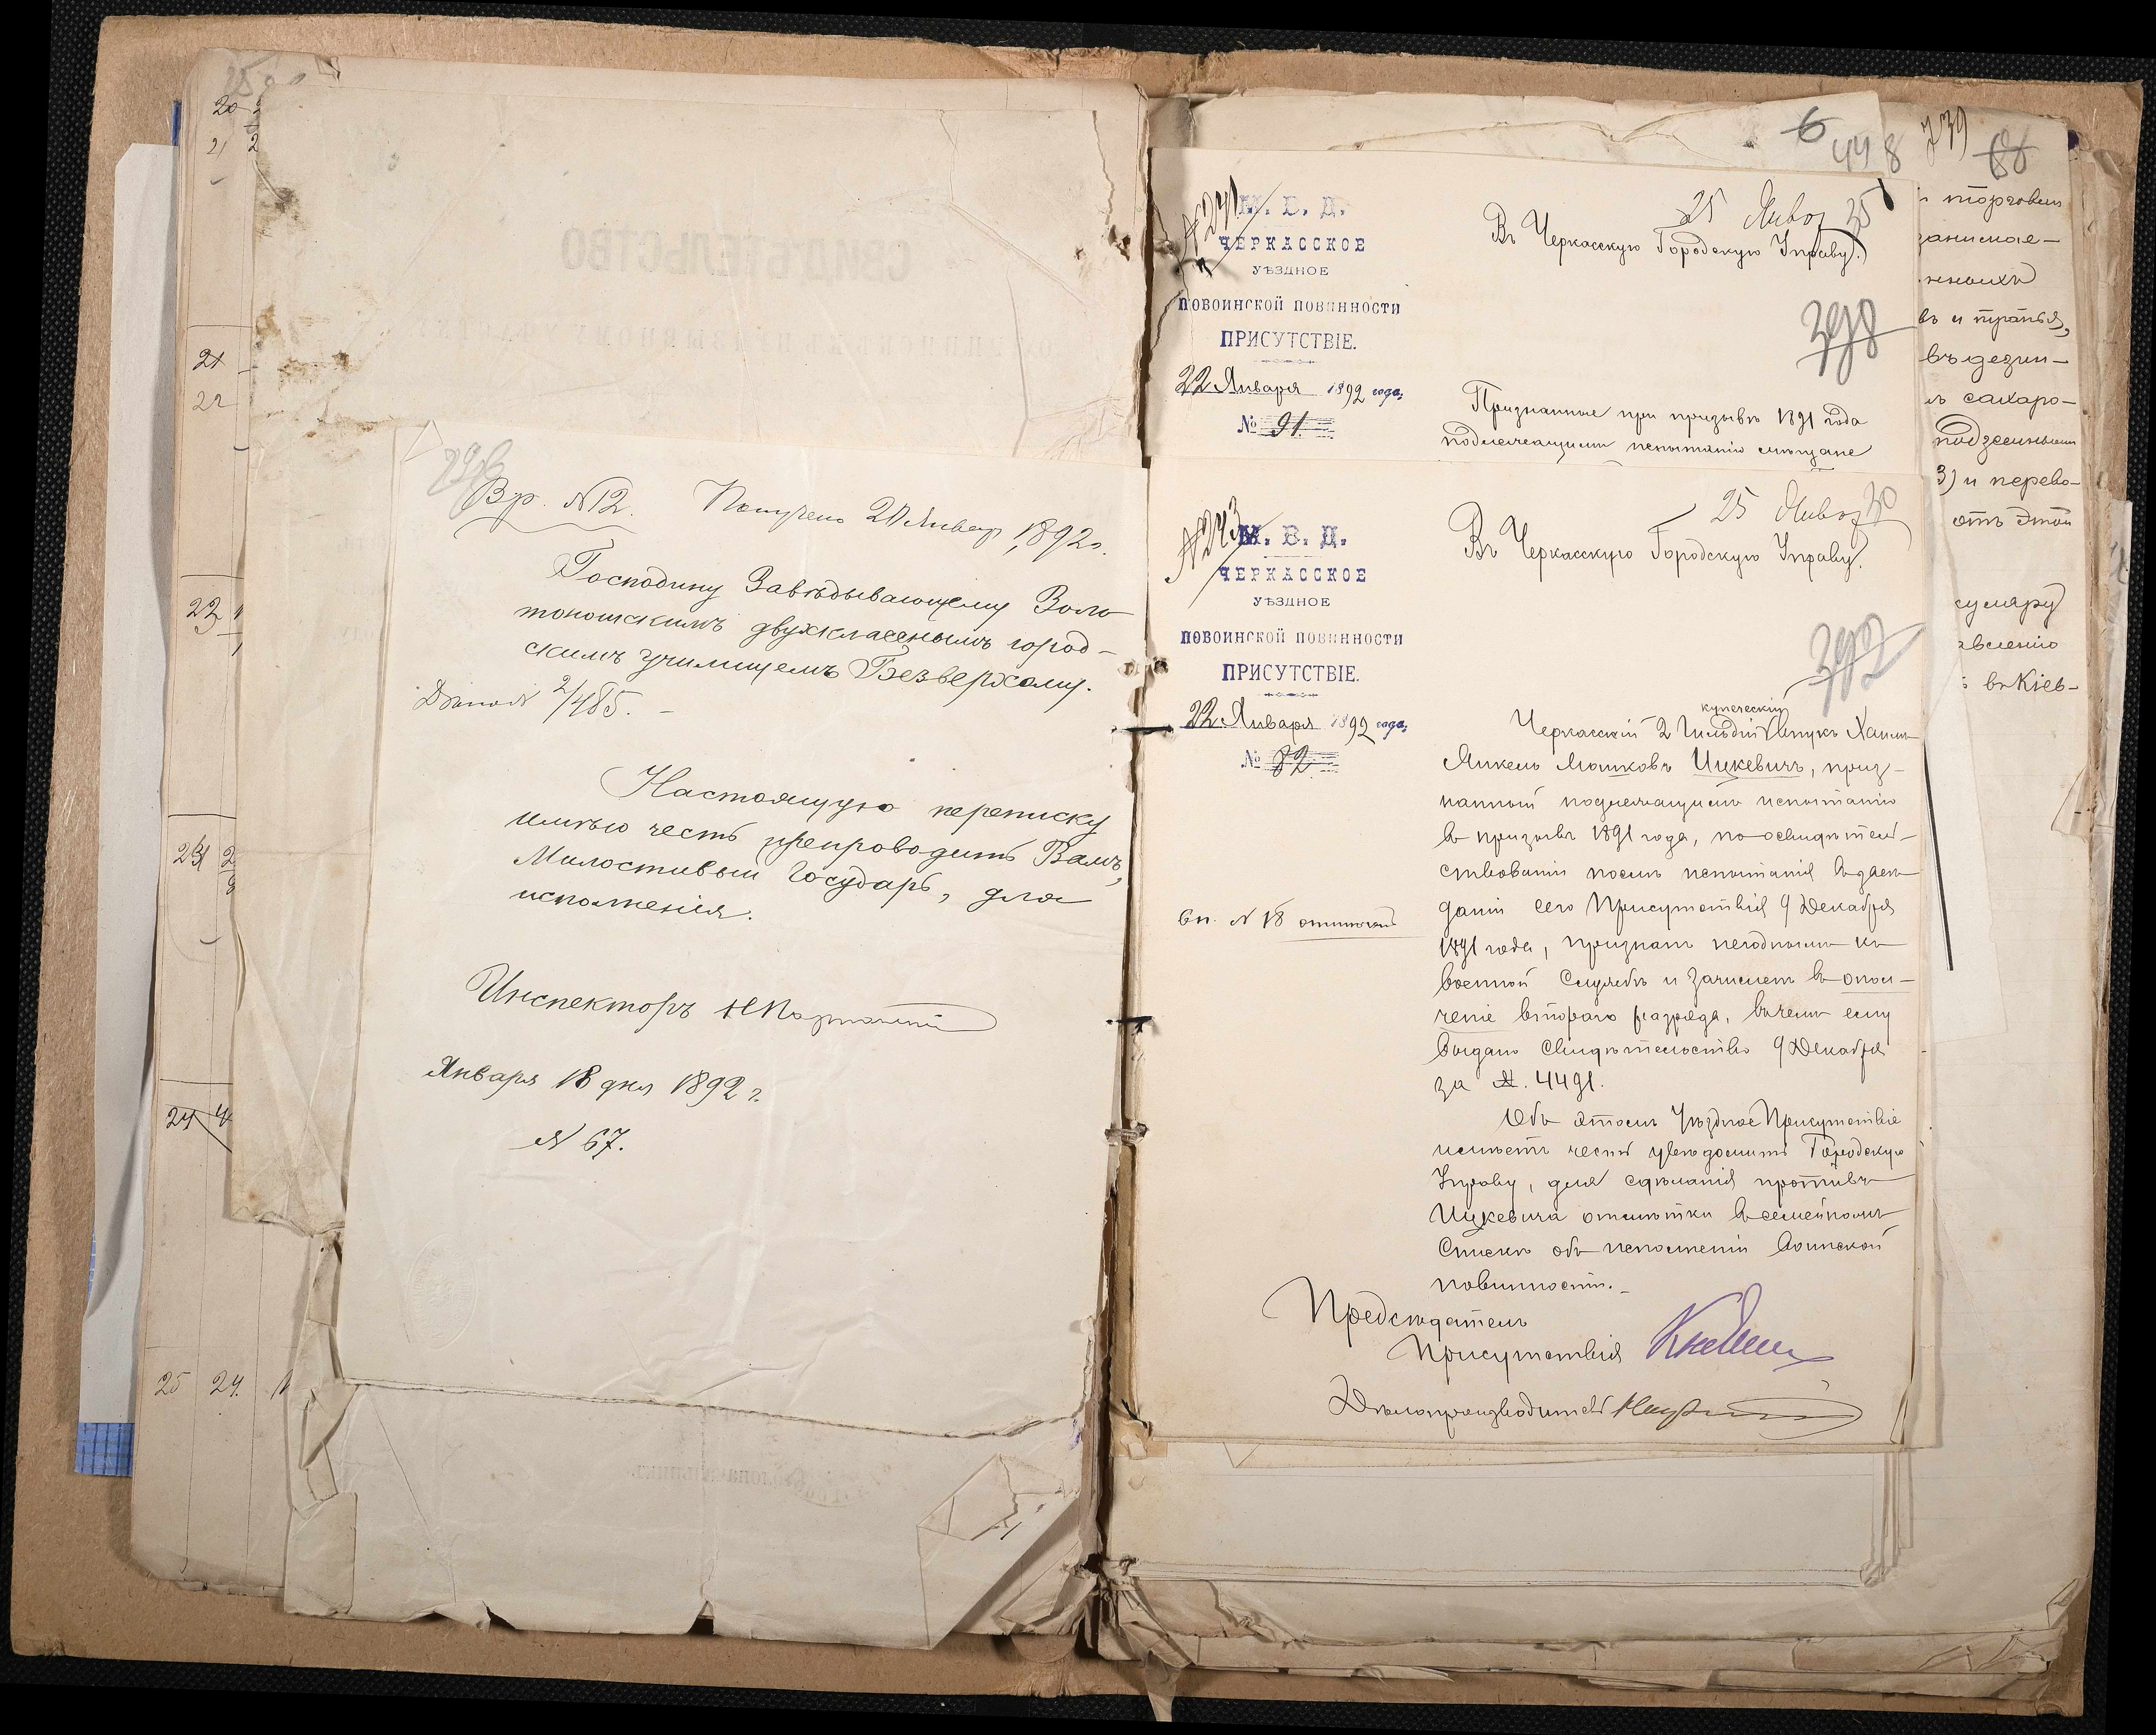 20
21
21
22
23
24
25 24.
СВИДѢТЕЛЬСТВО
Вр. №12. Получено 21 Январ 1892 г.
Господину Завѣдывающему Золо
тоношскимъ двухкласснымъ город-
скимъ училищемъ Безверхому.
2/485.
Настоящую переписку
имѣю честь препроводить Вамъ,
Милостивый Государь, для
исполненія.
Инспекторъ
Января 18 дня 1892 г.
№ 67.
6
448
739
68
№241
М. В. Д.
ЧЕРКАССКОЕ
УѢЗДНОЕ
ПОВОИНСКОЙ ПОВИННОСТИ
ПРИСУТСТВІЕ.
22 Января 1892 года,
№ 91
25 Янва 35
Въ Черкасскую Городскую Управу.
398
Признанные при призывѣ 1891 года
подлежащими испытанію мѣщане
№243
М. В. Д.
ЧЕРКАССКОЕ
УѢЗДНОЕ
ПОВОИНСКОЙ ПОВИННОСТИ
ПРИСУТСТВІЕ.
22 Января 1892 года,
№ 82
вп. № 18
25 Янва 30
Въ Черкасскую Городскую Управу.
392
купеческій
Черкасскій 2 Гильдіи внукъ Хаимъ
Янкель Мошковъ Ицкевичъ, приз-
нанный подлежащимъ испытанію
въ призывъ 1891 года, по освидѣтель-
ствованіи послѣ испытанія въ засѣ-
даніи сего Присутствія 9 Декабря
1891 года, признанъ негоднымъ къ
военной службѣ и зачисленъ въ опол-
ченіе второго разряда, въ чемъ ему
выдано свидѣтельство 9 Декабря
за №. 4491.
Объ этомъ Уѣздное Присутствіе
имѣетъ честь увѣдомить Городскую
Управу, для сдѣланія противъ
Ицкевича отмѣтки въ семейномъ
спискѣ объ исполненіи воинской
повинности.
Предсѣдатель
Присутствія
Дѣлопроизводитель
торговли
занимае-
въ дезин-
сахаро-
подземными
3) и перево-
отъ этой
въ Кіев-